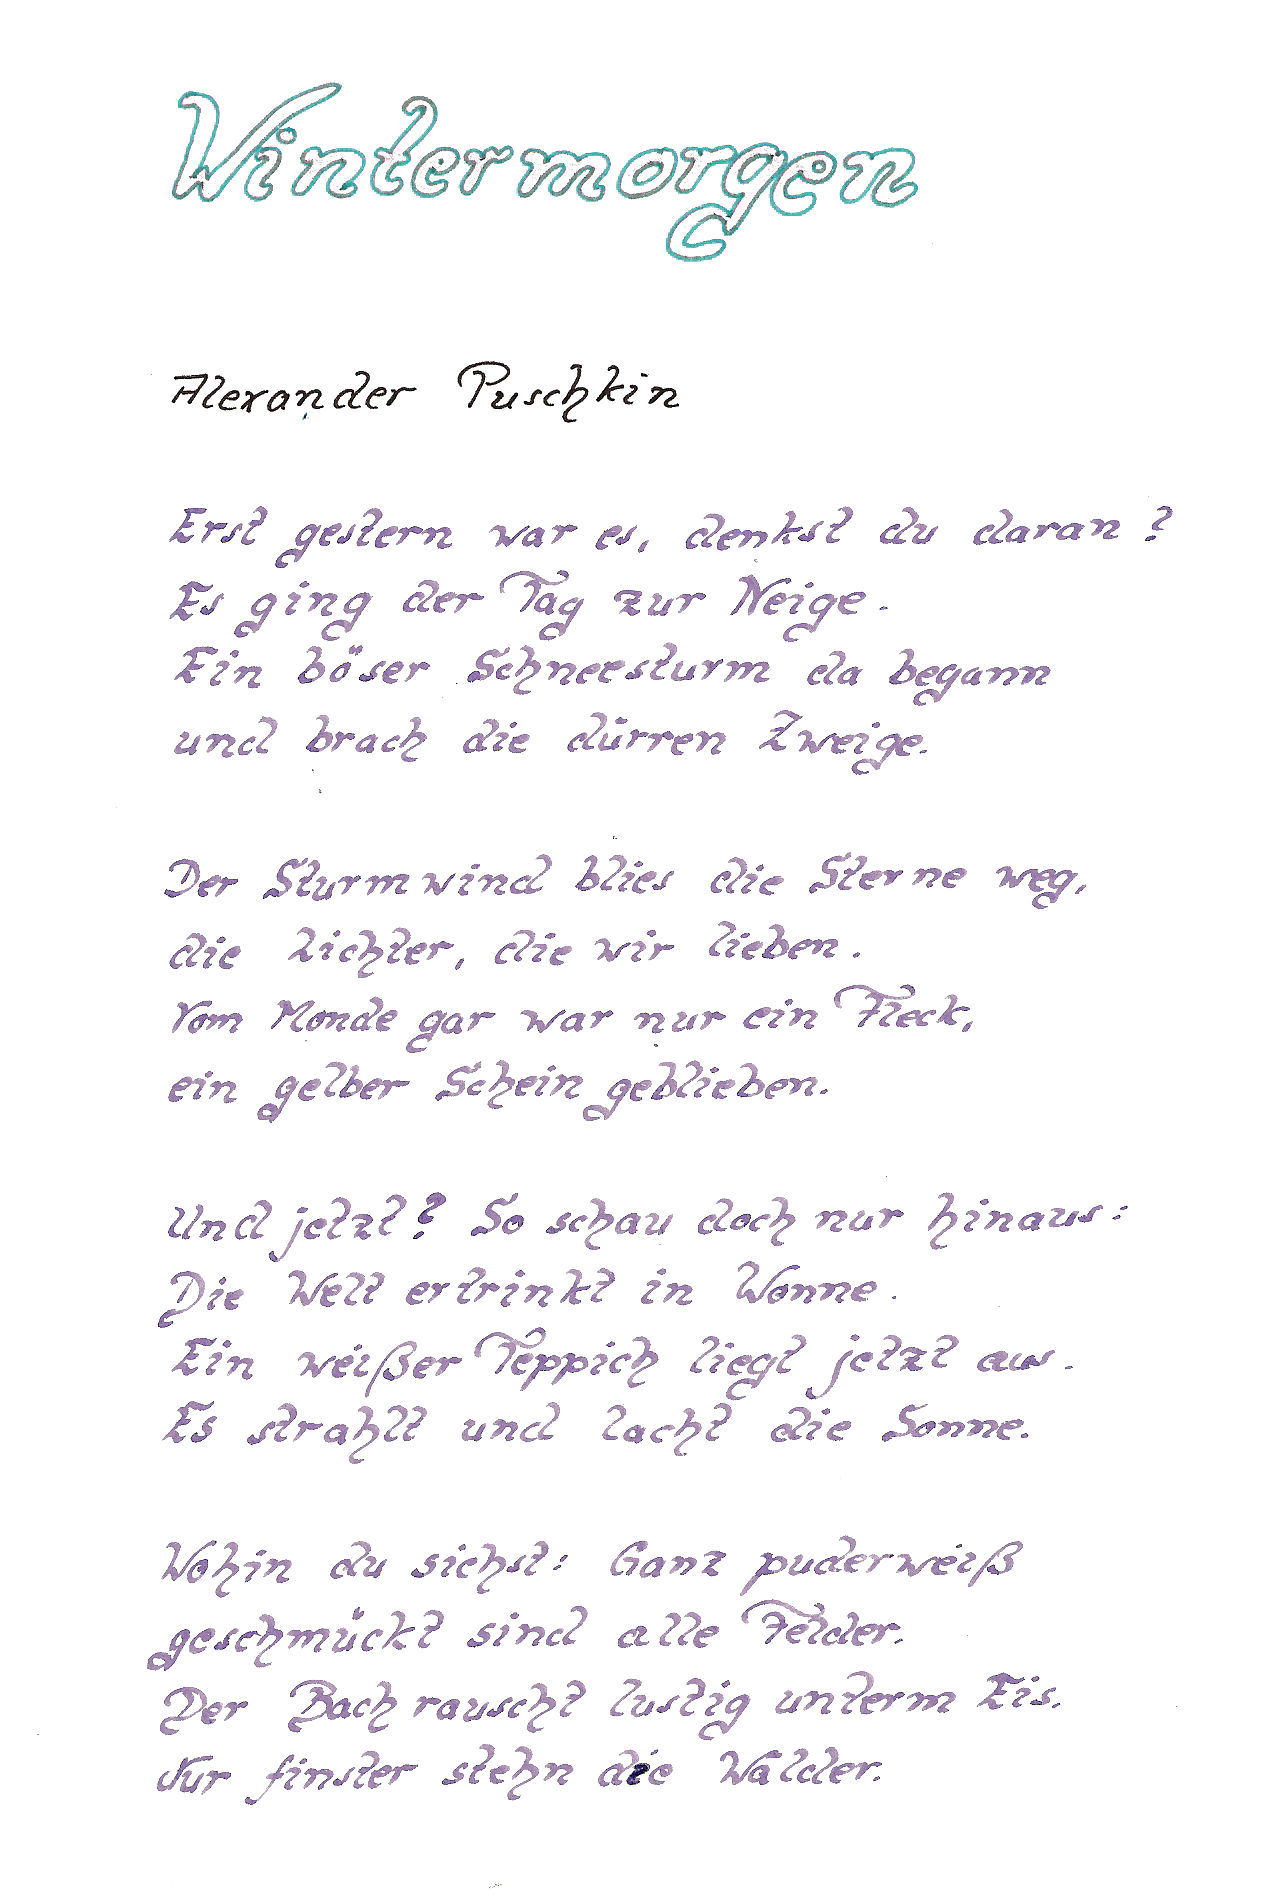 Wintermorgen
Alexander Puschkin
Erst gestern war es, denkst du daran?
Es ging der Tag zur Neige.
Ein böser Schneesturm da begann
und brach die dürren Zweige.
Der Sturmwind blies die Sterne weg,
die Lichter, die wir lieben.
Vom Monde gar war nur ein Fleck,
ein gelber Schein geblieben.
Und jetzt? So schau doch nur hinaus:
Die Welt ertrinkt in Wonne.
Ein weißer Teppich liegt jetzt aus.
Es strahlt und lacht die Sonne.
Wohin du siehst: Ganz puderweiß
geschmückt sind alle Felder.
Der Bach rauscht lustig unterm Eis.
Nur finster stehn die Wälder.